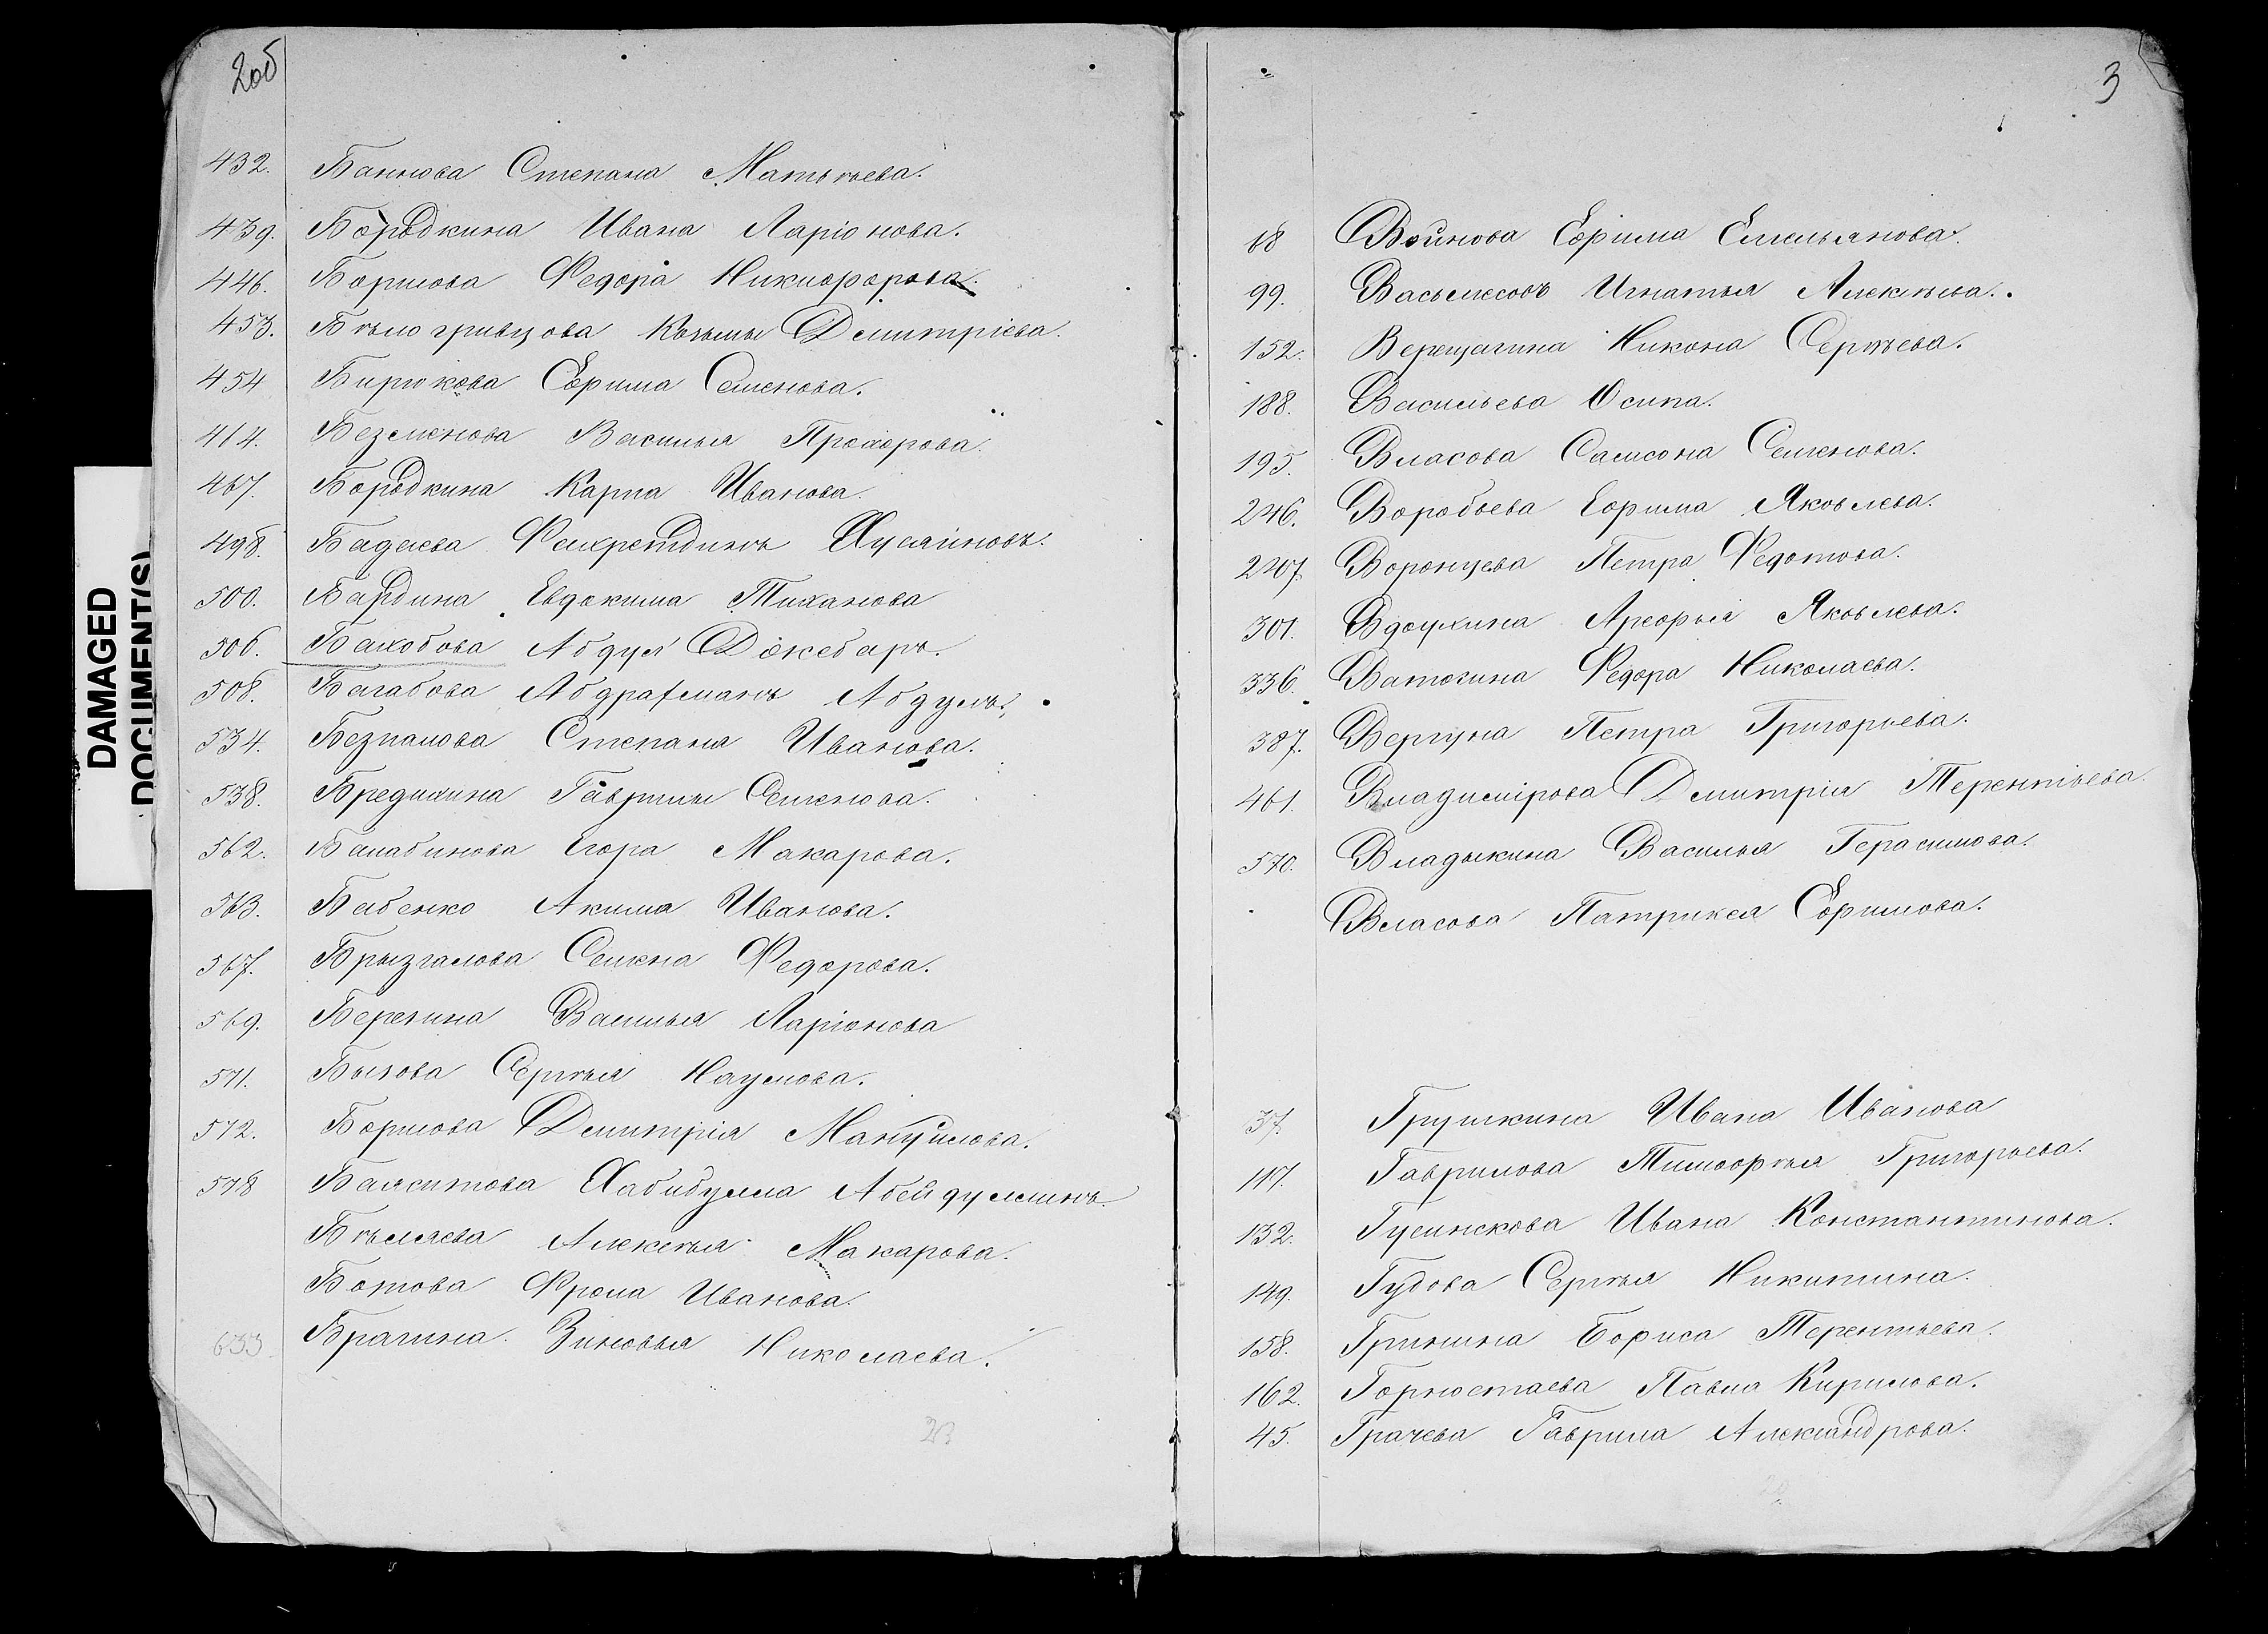 2об
432. Баннова Степана Матвѣева.
439. Бородкина Ивана Ларіонова.
446. Борисова Федора Никифорова.
453. Бѣлогривцова Козьмы Дмитріева.
454 Бирюкова Ефима Семенова.
464. Безменова Василья Прохорова.
467. Бородкина Карпа Иванова.
498. Бадаева Фахретдинъ Хусаиновъ.
500. Бардина Евдокима Тиханова
506. Бахобова Абдул Джебаръ.
508. Багабова Абдрахманъ Абдулъ.
534. Безпалова Степана Иванова.
538. Бредихина Гаврилы Семенова.
562. Балабинова Егора Макарова.
563. Бабенко Акима Иванова.
567. Брызгалова Семена Федорова.
569. Березина Василья Ларіонова
571. Быкова Сергѣя Наумова.
572. Борисова Дмитрія Мануйлова.
578 Баляситова Хабибулла Абейдуллинъ.
Бѣляева Алексѣя Макарова.
Ботова Фрола Иванова.
633. Брагина Зиновья Николаева.
23
DAMAGED
DOCUMENT(S)
3
68 Войнова Ефима Емельянова.
99. Васьмесовъ Игнатья Алексѣева.
152. Верещагина Никона Сергѣева.
188. Васильева Осипа.
195. Власова Самсона Семенова.
246. Воробьева Ефима Яковлева.
247. Воронцева Петра Федотова.
301. Вдоухина Арефья Яковлева.
336. Ватагина Федора Николаева.
387. Вергуна Петра Григорьева.
461. Владимірова Дмитрія Терентьева.
570. Владыкина Василья Герасимова.
Власова Патрикея Ефимова.
37. Грушкина Ивана Иванова
117. Гаврилова Тимофѣя Григорьева.
132. Гусинскова Ивана Константинова.
149. Гудова Сергѣя Никитина.
158. Гринина Бориса Терентьева.
162. Горностаева Павла Кирилова.
45. Грачева Гаврила Александрова.